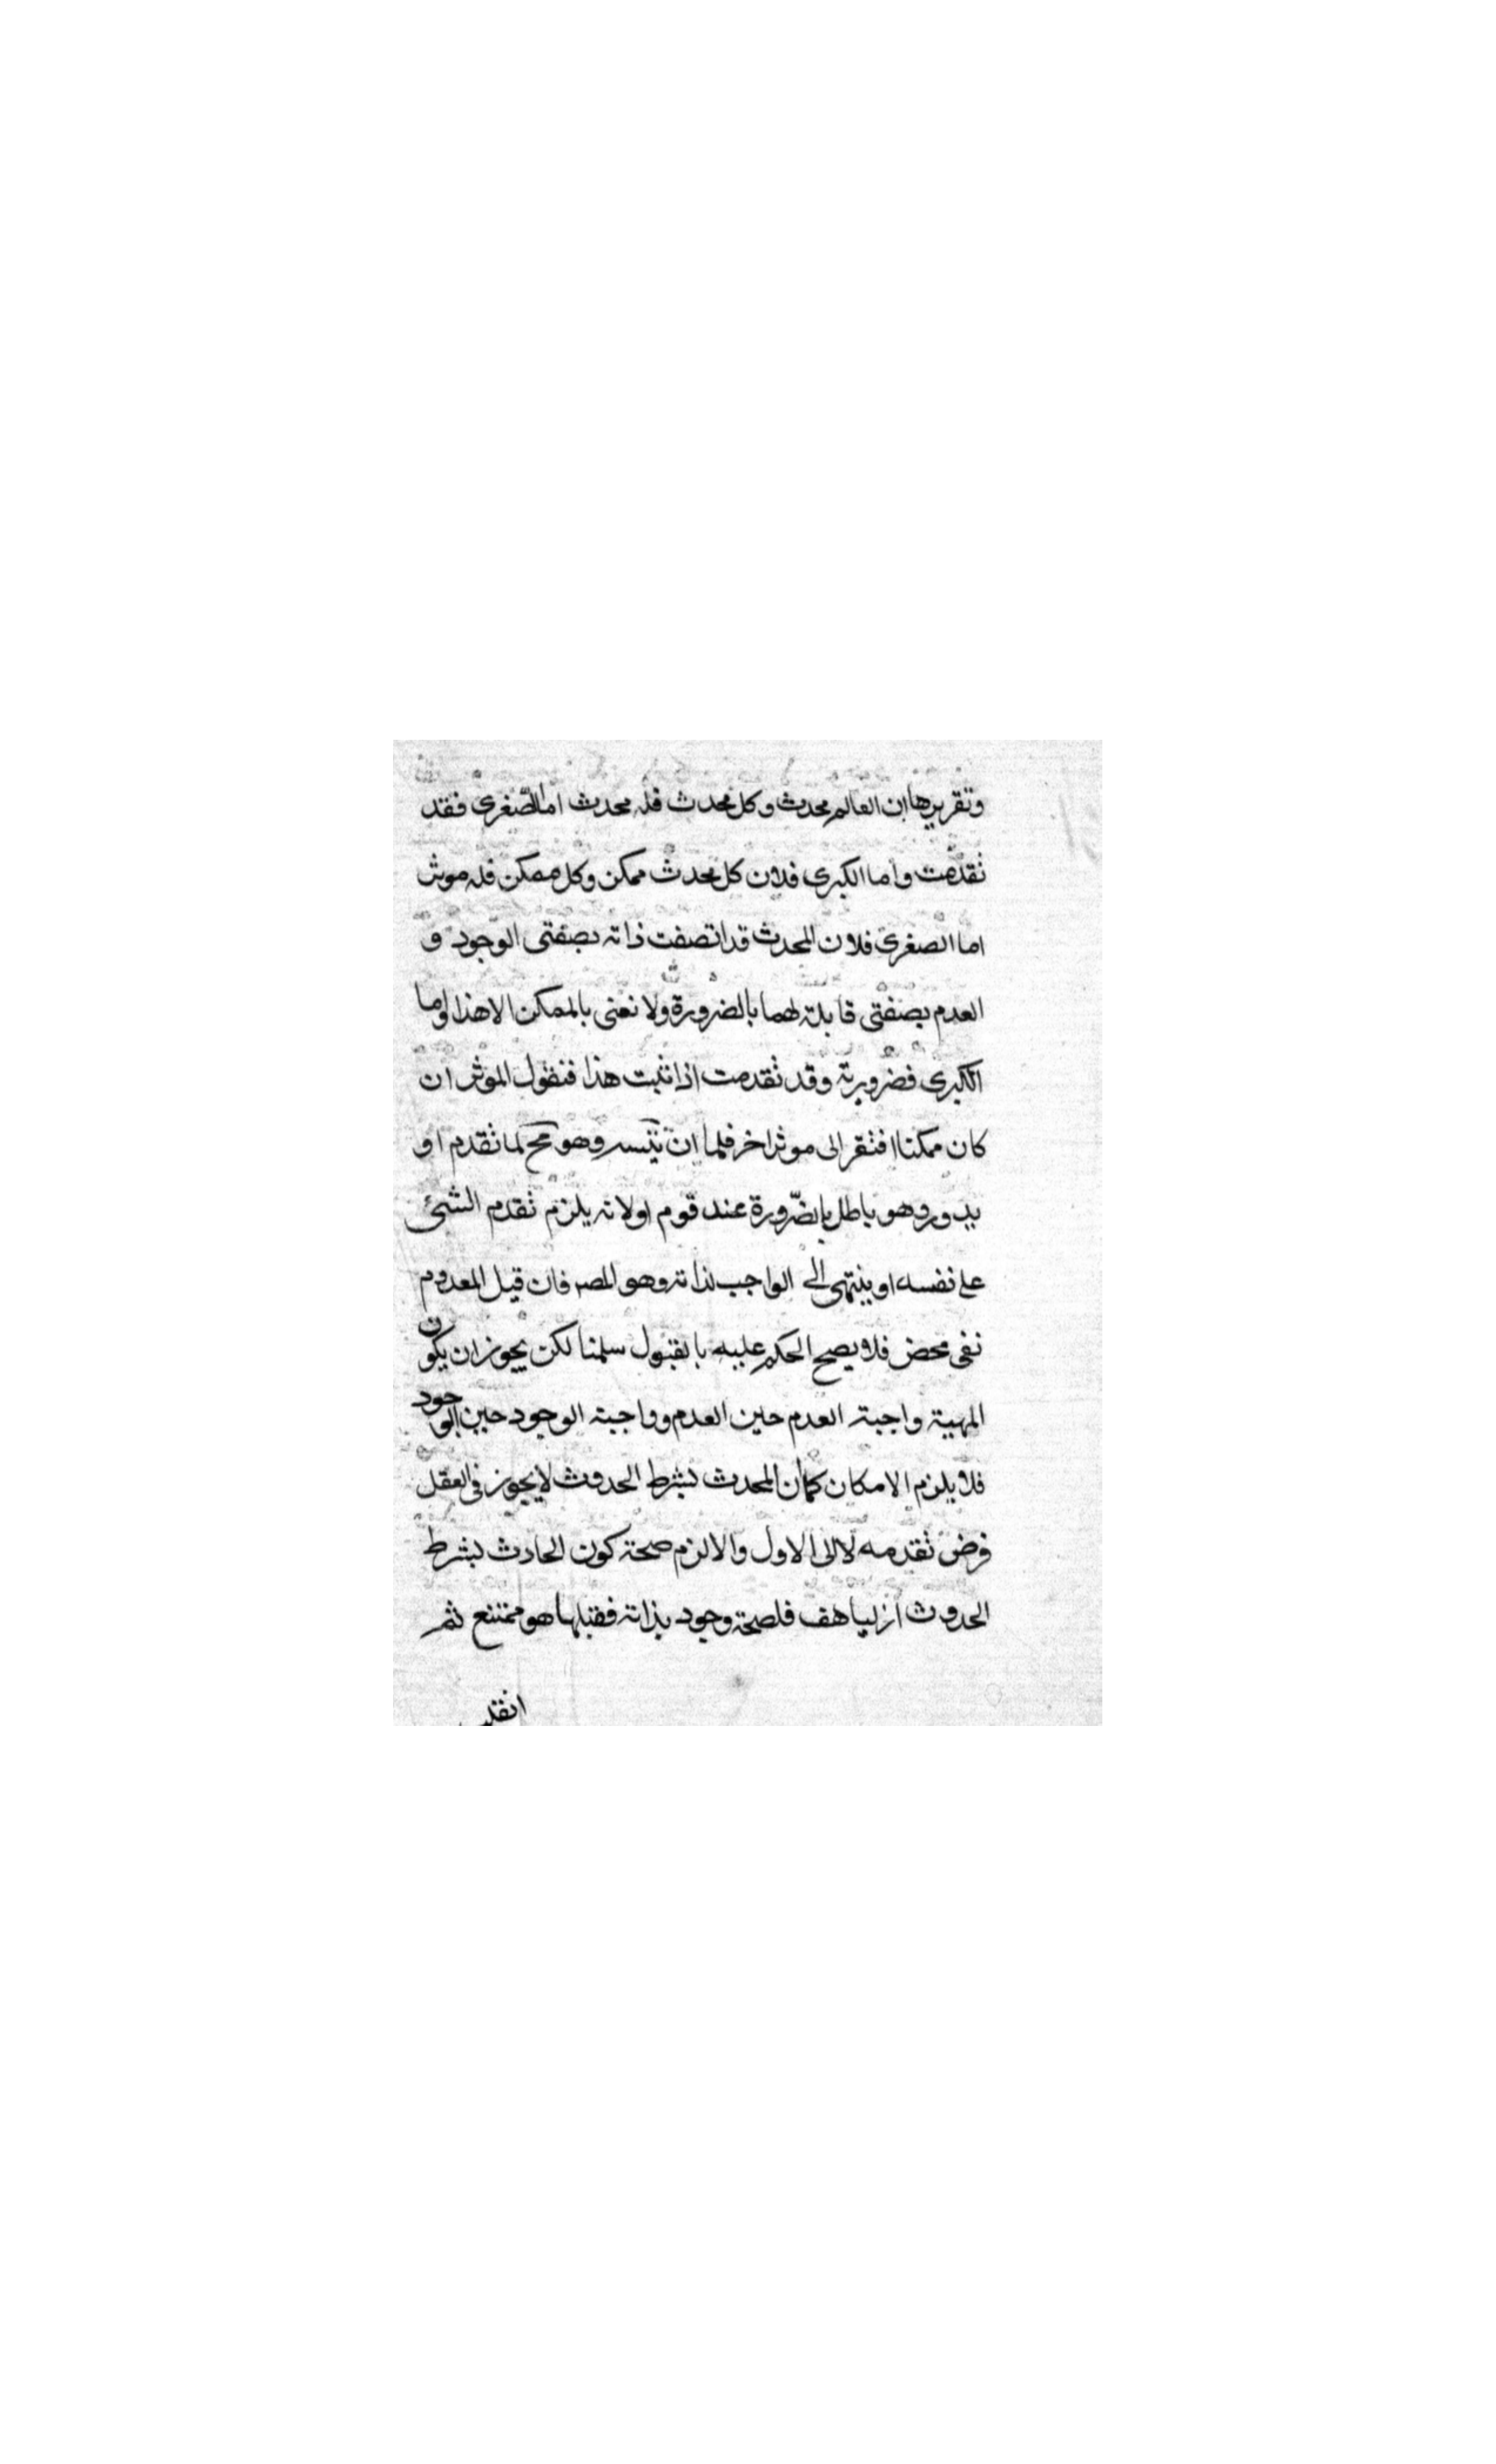 وتقريرها ان العالم محدث وكل محدث فله محدث اما الصّغرى فقد
تقدمت واما الكبرى فلان كل محدث ممكن وكل ممكن فله موثر
اما الصغرى فلان المحدث قد اتصفت ذاته بصفتى الوجود و
العدم بصفتى قابلة لهما بالضرورة ولا نعنى بالممكن الا هذا واما
الكبرى فضرورية وقد تقدمت اذا ثبت هذا فنقول الموثر ان
كان ممكنا افتقر الى موثر اخر فلما ان يتسـ وهو مح لما تقدم او
يدور وهو باطل بالضّرورة عند قوم اولانه يلزم تقدم الشئ
على نفسه او ينتهى الى الواجب لذاته وهو المصـ فان قيل المعدوم
نفى محض فلا يصح الحكم عليه بالقبول سلمنا لكن يجوز ان يكون
المهية واجبة العدم حين العدم وواجبة الوجود حين الوجود
فلا يلزم الامكان كما ان المحدث بشرط الحدوث لا يجوز فى العقل
فرض تقدمه لا الى الاول والا لزم صحة كون الحادث بشرط
الحدوث ازليا هف فلصحة وجود بذاته فقبلها هو ممتنع ثم
انقلب